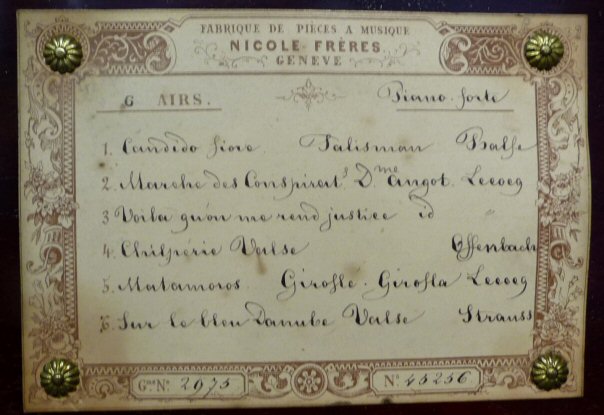 FABRIQUE DE PIÈCES A MUSIQUE
NICOLE FRÈRES
GENÈVE
6 AIRS. Piano-forte
1. Candido fiore Talisman Balfe
2. Marche des Conspirat.s D.me Angot Lecocq
3 Voilà qu'on me rend justice id "
4. Chilpéric Valse Offenbach
5. Matamoros. Girofle-Girofla Lecocq
6. Sur le bleu Danube Valse Strauss
Gme No. 2975 No. 45256